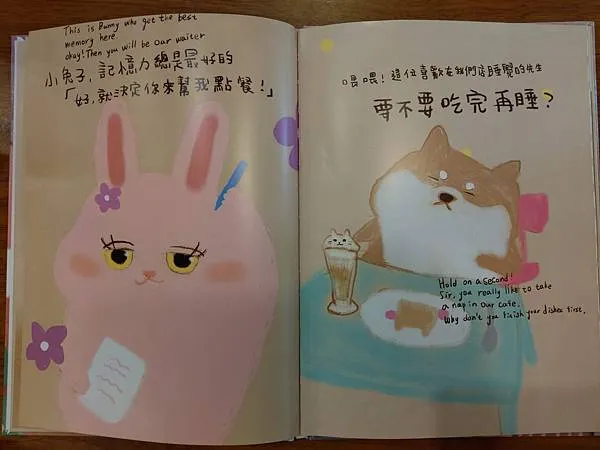 This is Bunny who got the best
memory here.
okay! Then you will be our waiter
小兔子，記憶力總是最好的
「好，就決定你來幫我點餐！」
喂喂！這位喜歡在我們店睡覺的先生
要不要吃完再睡？
Hold on a second!
Sir, you really like to take
a nap in our cafe.
Why don't you finish your dishes first.